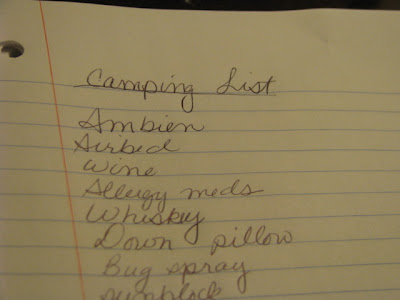 Camping List
Ambien
Airbed
Wine
Allergy meds
Whiskey
Down pillow
Bug spray
sunblock